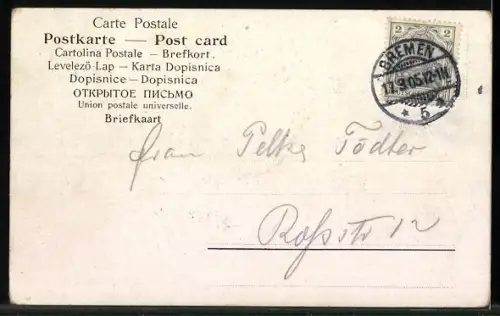 Carte Postale
Postkarte — Post card
Cartolina Postale – Brefkort
Levelező-Lap – Karta Dopisnica
Dopisnice – Dopisnica
ОТКРЫТОЕ ПИСЬМО
Union postale universelle.
Briefkaart
2 2
BREMEN
17.3.05.12-1N.
* 5 *
Frau Pelka Tödter
Roßstr 12